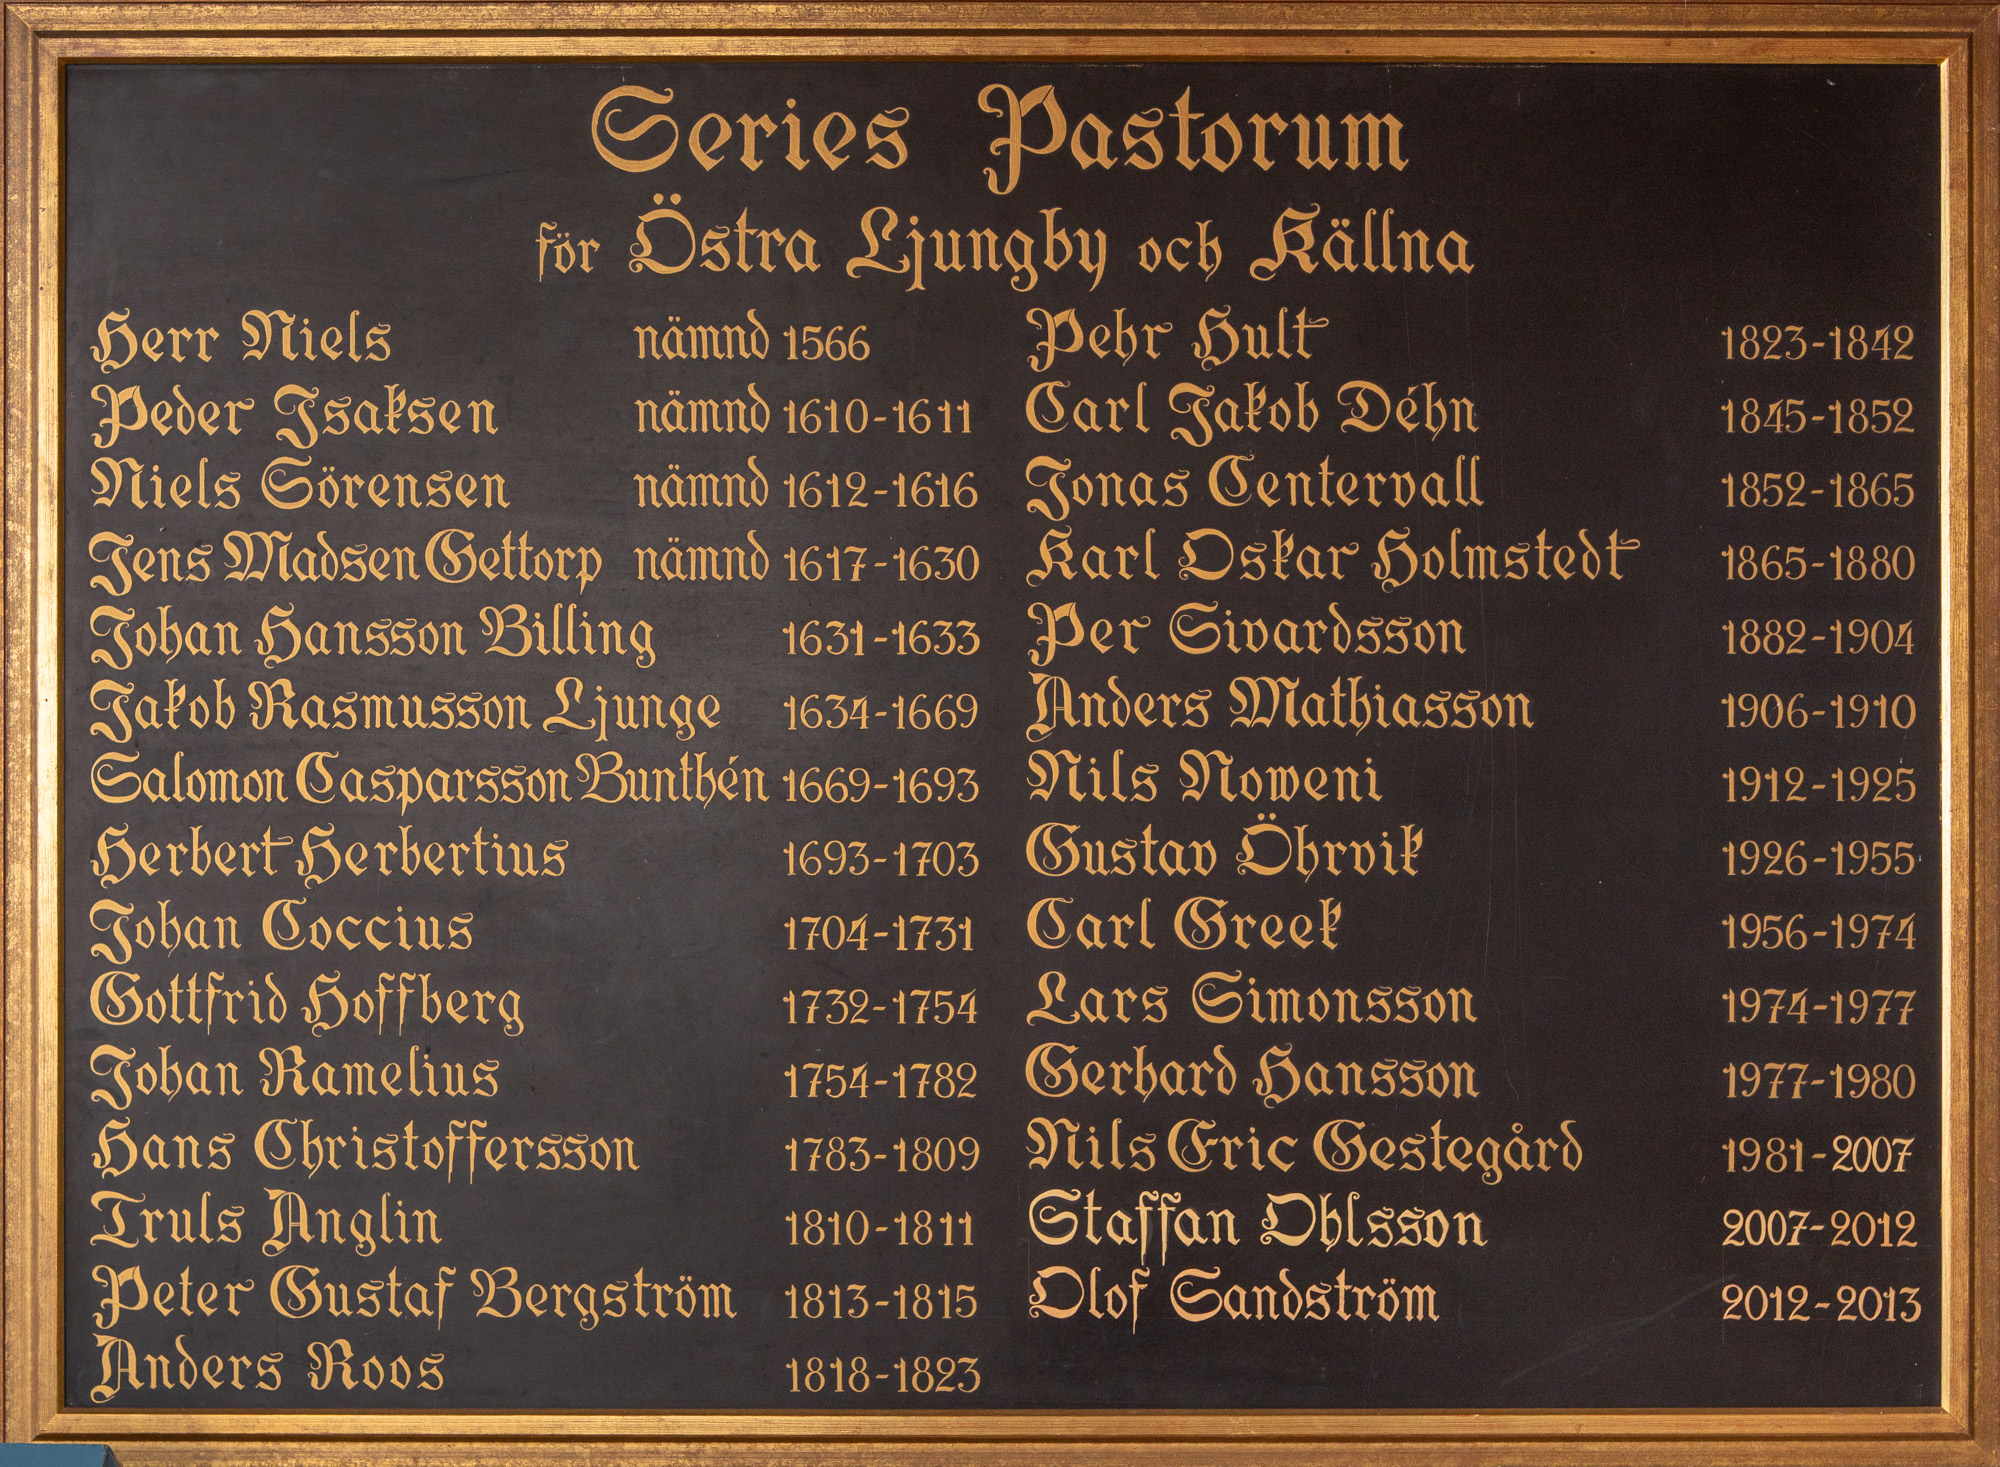 Series Pastorum
för Östra Ljungby och Källna
Herr Niels nämnd 1566
Peder Isaksen nämnd 1610-1611
Niels Sörensen nämnd 1612-1616
Jens Madsen Gettorp nämnd 1617-1630
Johan Hansson Billing 1631-1633
Jakob Rasmusson Ljunge 1634-1669
Salomon Casparsson Bunthén 1669-1693
Herbert Herbertius 1693-1703
Johan Coccius 1704-1731
Gottfrid Hoffberg 1732-1754
Johan Ramelius 1754-1782
Hans Christoffersson 1783-1809
Truls Anglin 1810-1811
Peter Gustaf Bergström 1813-1815
Anders Roos 1818-1823
Pehr Hult 1823-1842
Carl Jakob Déhn 1845-1852
Jonas Centervall 1852-1865
Karl Oskar Holmstedt 1865-1880
Per Sivardsson 1882-1904
Anders Mathiasson 1906-1910
Nils Noweni 1912-1925
Gustav Öhrvik 1926-1955
Carl Greek 1956-1974
Lars Simonsson 1974-1977
Gerhard Hansson 1977-1980
Nils Eric Gestegård 1981-2007
Staffan Ohlsson 2007-2012
Olof Sandström 2012-2013